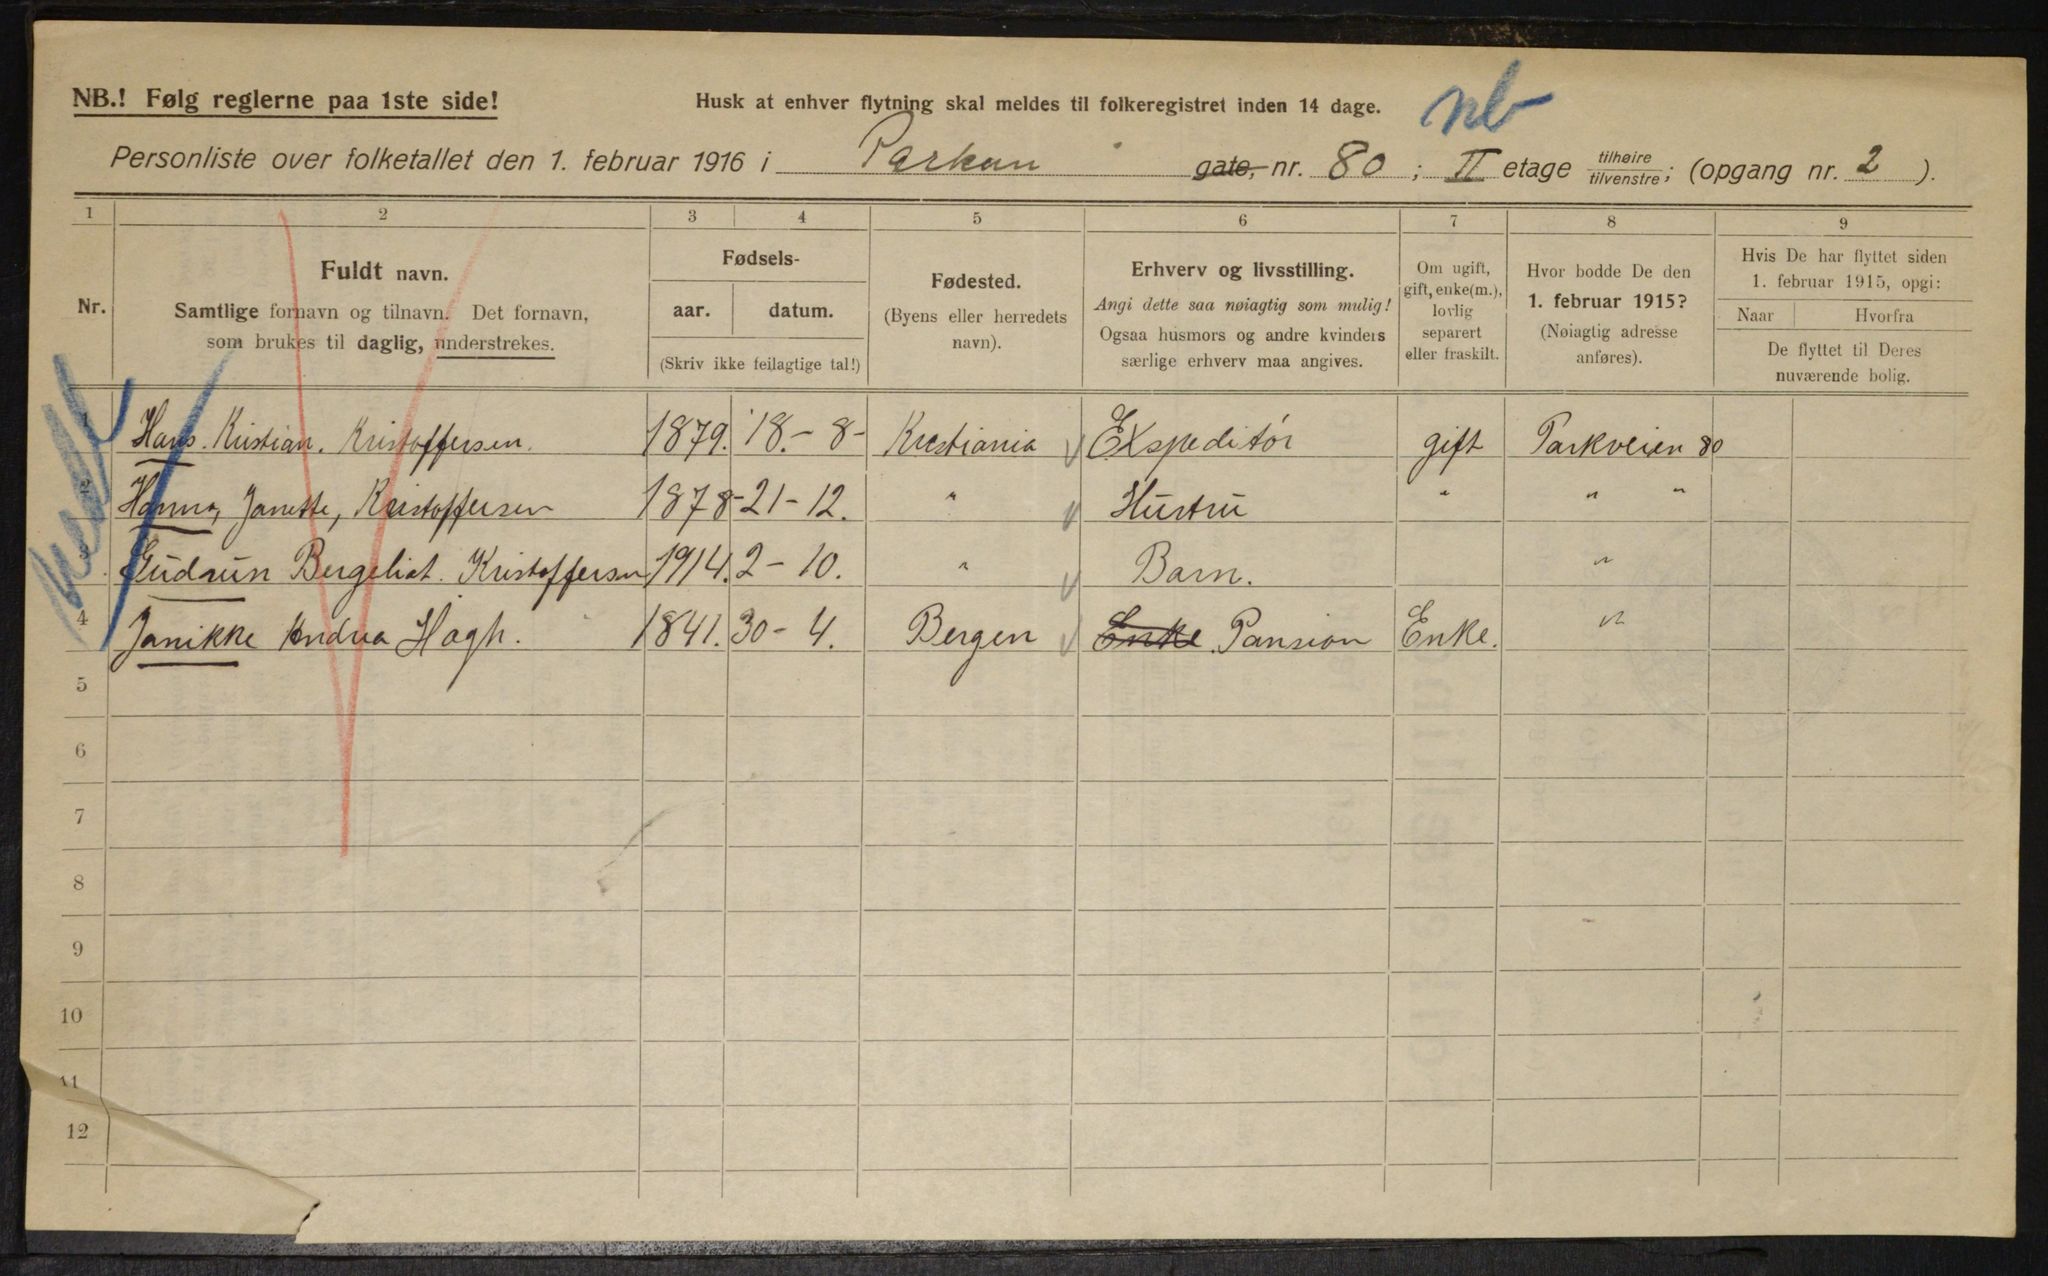 NB.! Følg reglerne paa 1ste side!
Husk at enhver flytning skal meldes til folkeregistret inden 14 dage.
nb
Personliste over folketallet den 1. februar 1916 i Parkun gate, nr. 80 ; II etage tilhøire tilvenstre ; (opgang nr. 2 ).
1 2 3 4 5 6 7 8 9
Nr.
Fuldt navn.
Samtlige fornavn og tilnavn. Det fornavn,
som brukes til daglig, understrekes.
Fødsels-
aar. datum.
(Skriv ikke feilagtige tal!)
Fødested.
(Byens eller herredets
navn).
Erhverv og livsstilling.
Angi dette saa nøiagtig som mulig!
Ogsaa husmors og andre kvinders
særlige erhverv maa angives.
Om ugift,
gift, enke(m.),
lovlig
separert
eller fraskilt.
Hvor bodde De den
1. februar 1915?
(Nøiagtig adresse
anføres).
Hvis De har flyttet siden
1. februar 1915, opgi:
Naar Hvorfra
De flyttet til Deres
nuværende bolig.
1 Hans. Kristian. Kristoffersen. 1879. 18.-8- Kristiania Expeditör gift Parkveien 80
2 Hanna, Janette, Kristoffersen 1878-21-12. " Hustru " " "
3 Gudrun Bergeliot. Kristoffersen 1914. 2-10. " Barn. "
4 Janikke Andrea Hogh. 1841. 30-4. Bergen Enke Pansion Enke. "
5
6
7
8
9
10
11
12